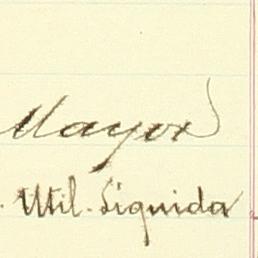 Mayor
. Util. Liquida